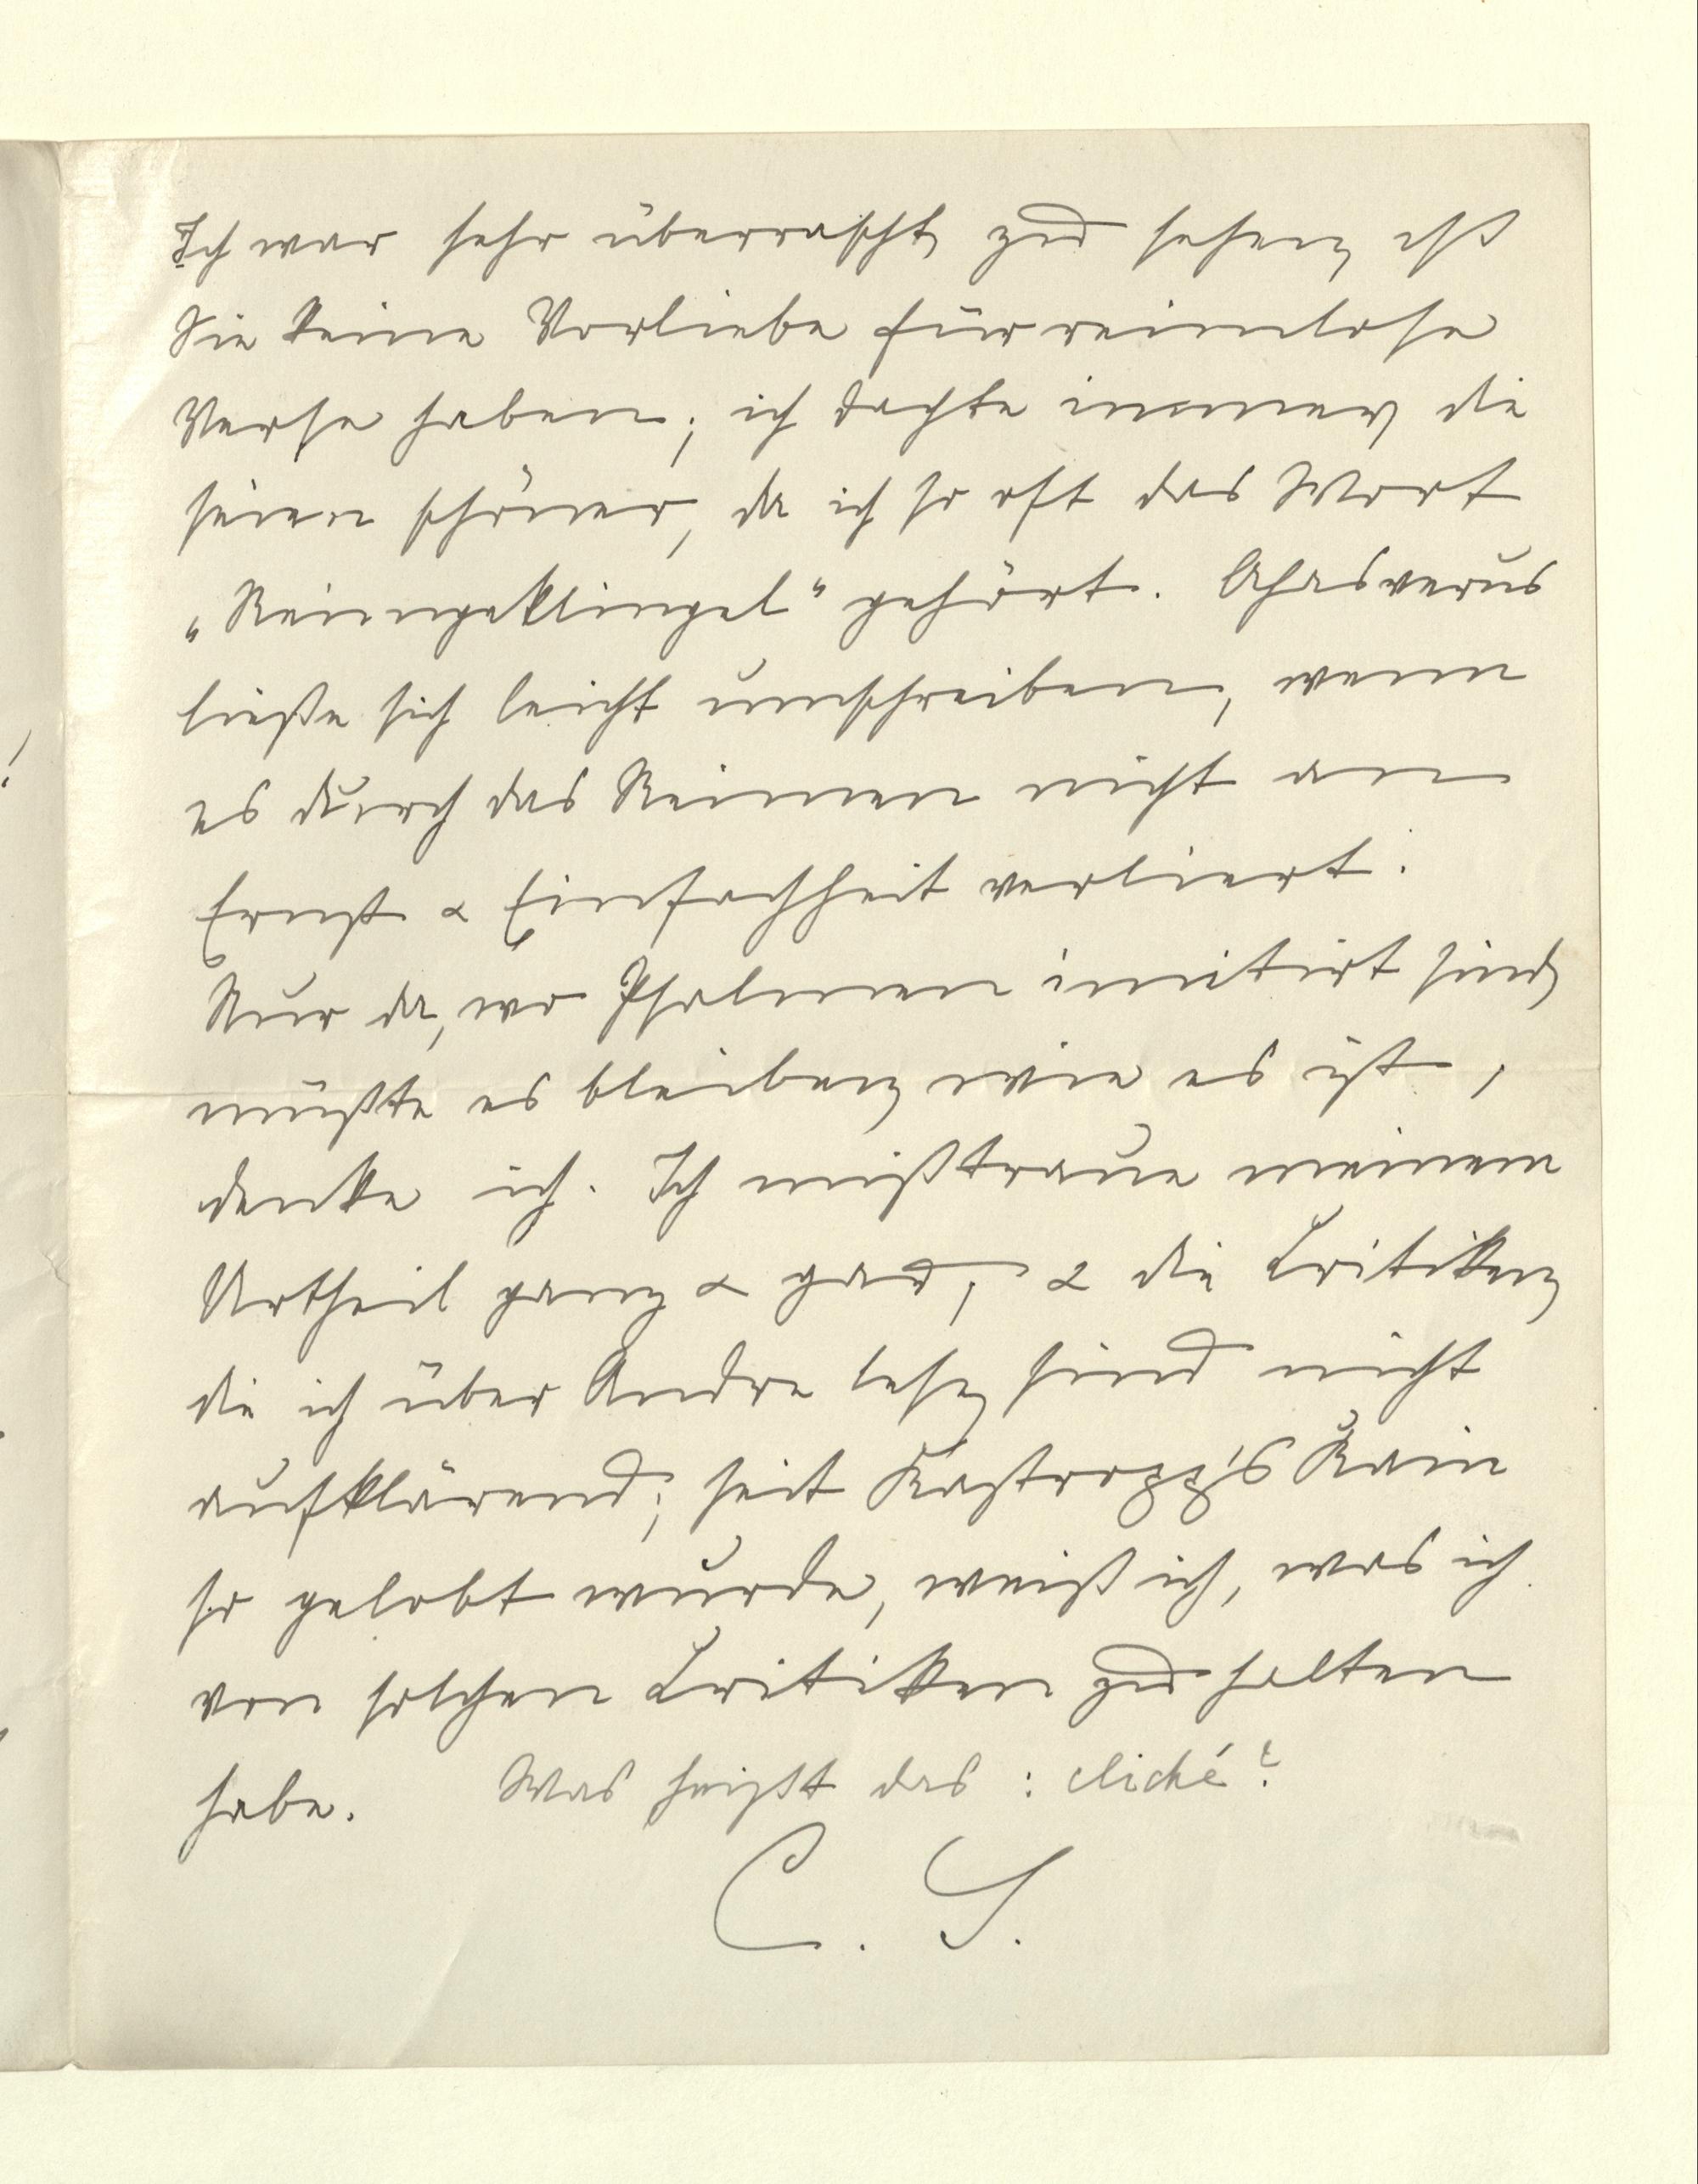 Ich war sehr überrascht, zu sehen, daß
Sie keine Vorliebe für reimlose
Verse haben; ich dachte immer, die
seien schöner, da ich so oft das Wort
„Reimgeklingel“ gehört. Ahasverus
ließe sich leicht umschreiben, wenn
es durch das Reimen nicht an
Ernst & Einfachheit verliert.
Nur da, wo Psalmen imitirt sind,
müßte es bleiben, wie es ist,
denke ich. Ich mißtraue meinem
Urtheil ganz & gar, & die Critiken,
die ich über Andre lese, sind nicht
aufklärend; seit Kastropp's Kain
so gelobt wurde, weiß ich, was ich
von solchen Critiken zu halten
habe. Was heißt das: cliché?
C. S.